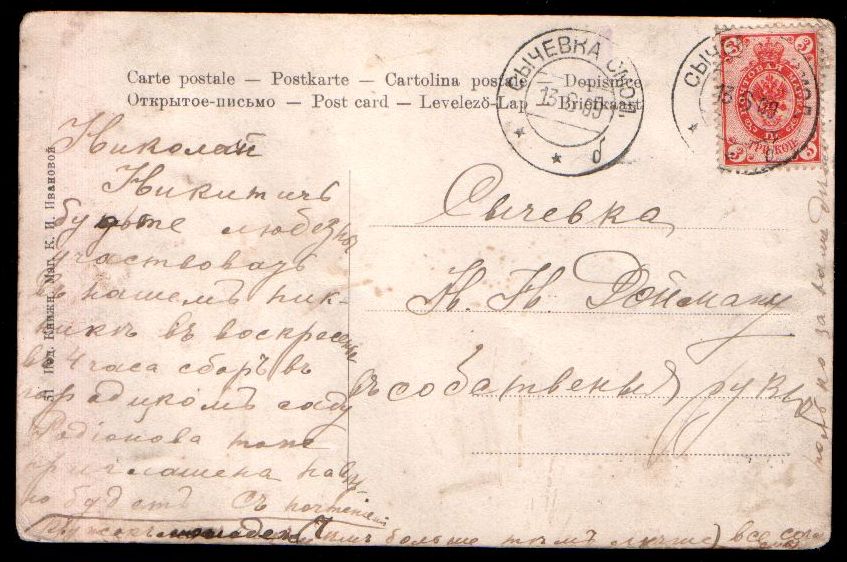 Carte postale — Postkarte — Cartolina postale — Dopisnice
Открытое-письмо — Post card — Levelező-Lap — Briefkaart
СЫЧЕВКА СМОЛ.
13 09
б
3
3
3
3
51 Изд. Книжн. Маг. К. И. Ивановой
Николай
Никитичъ
будьте любезны
участвовать
въ нашемъ пик-
никѣ въ воскресенье
въ 4 часа сборъ въ
городцкомъ саду
Родіонова тоже
приглашена
но будетъ Съ почтеніемъ
чѣмъ больше тѣмъ лучше) все
Сычевка
Н. Н. Дойману
въ собственныя руки
только за вами